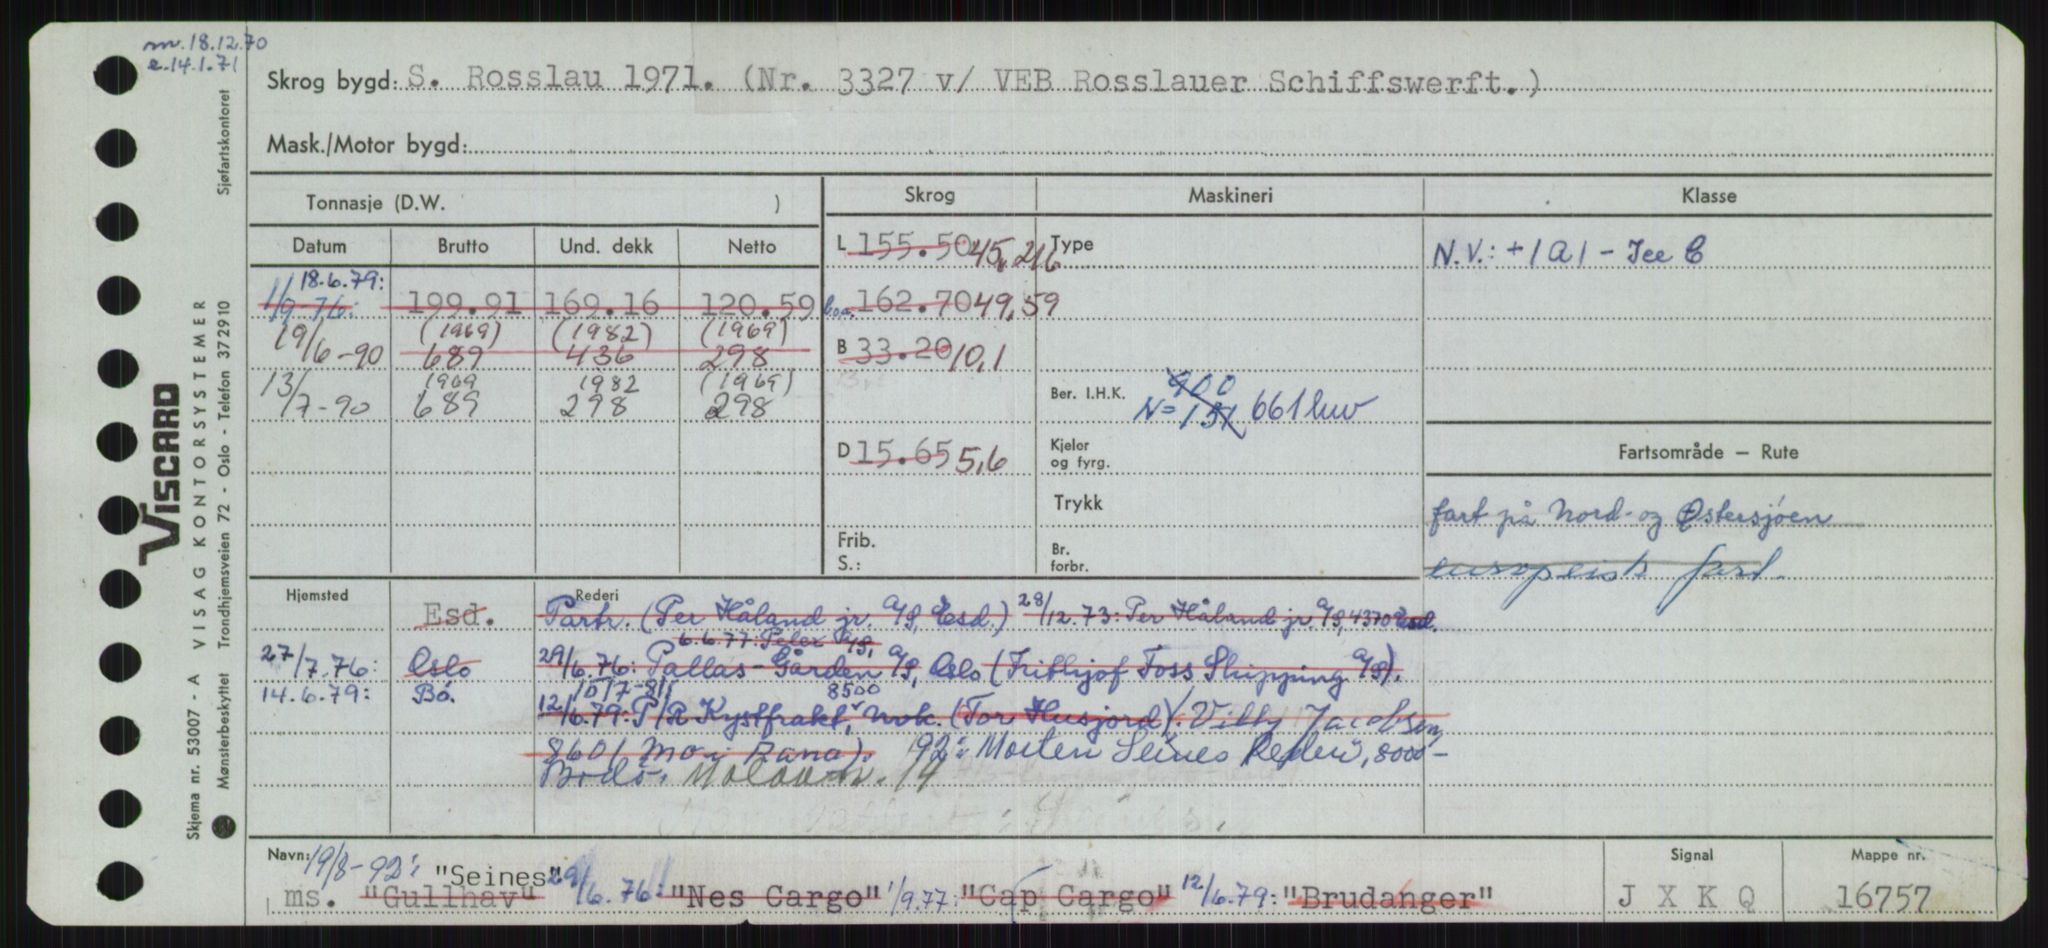 m. 18.12.70
e. 14.1.71
Skrog bygd: S. Rosslau 1971. (Nr. 3327 v/ VEB Rosslauer Schiffswerft.)
Mask./Motor bygd:
Tonnasje (D.W. )
Skrog
Maskineri
Klasse
Datum
Brutto
Und. dekk
Netto
L 155.50 45,216
Type
N.V.: +1A1 - Ice C
18.6.79:
1/9-76: 199.91 169.16 120.59
b.o.a. 162.70 49,59
19/6-90 (1969) 689 (1982) 436 (1969) 298
B 33.20 10,1
13/7-90 1969 689 1982 298 (1969) 298
Ber. I.H.K. 900 N=151 661 kw
D 15.65 5,6
Kjeler og fyrg.
Fartsområde — Rute
Trykk
fart på Nord- og Østersjøen
Frib.
S.:
Br. forbr.
europeisk fart.
Hjemsted
Rederi
Esd. Partr. (Per Håland jr. A/S, Esd.) 28/12.73: Per Håland jr. A/S, 4370 Esd.
6.6.77: Pelex A/S,
27/7.76: Oslo 29/6.76: Pallas-Gården A/S, Oslo (Frithjof Foss Shipping A/S).
14.6.79: Bø. 10/7-81: 8500
12/6.79: P/R Kystfrakt, Nvk. (Tor Husjord). Villy Jacobsen,
8601 Mo i Rana). 92: Morten Seines Rederi, 8000-
Bodø.
Navn: 19/8-92: "Seines"
ms. "Gullhav" 29/6.76: "Nes Cargo" 1/9.77: "Cap Cargo" 12/6.79: "Brudanger"
Signal
J X K Q
Mappe nr.
16757
VISCARD
VISAG KONTORSYSTEMER
Skjema nr. 53007 - A
Mønsterbeskyttet Trondhjemsveien 72 - Oslo - Telefon 372910
Sjøfartskontoret